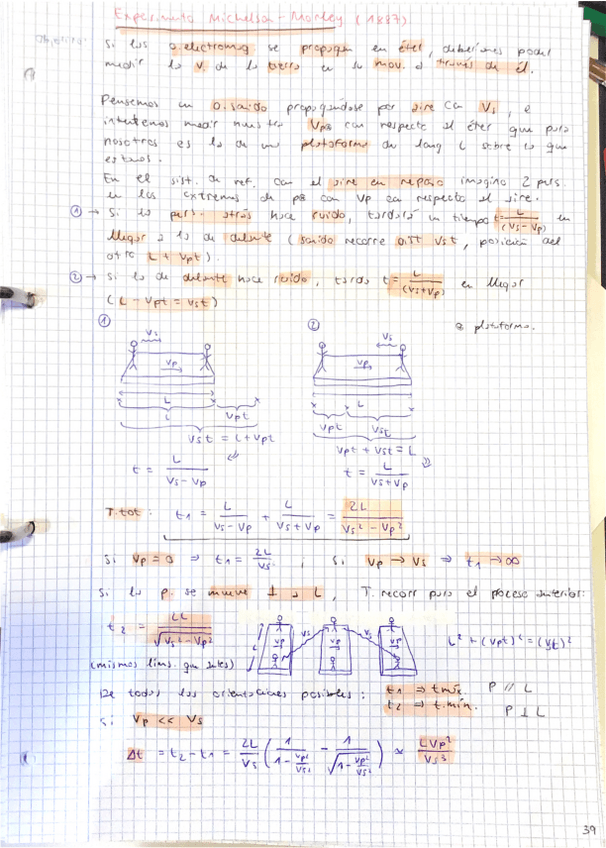 Experimento Michelson-Morley (1887)
Objetivo: Si las o. electromag se propagan en éter, deberíamos poder
medir la v. de la tierra en su mov. a través de él.
Pensemos en o. sonido propagándose por aire con Vs, e
intentemos medir nuestra Vp con respecto al éter que para
nosotros es la de una plataforma de long L sobre la que
estamos.
En el sist. de ref. con el aire en reposo imagino 2 pers.
en los extremos de p con Vp con respecto al aire.
① → Si la pers. atrás hace ruido, tardará un tiempo t = L/(Vs-Vp) en
llegar a la de delante (sonido recorre dist Vst, posición del
otro L + Vpt).
② → Si la de delante hace ruido, tarda t = L/(Vs+Vp) en llegar
(L - Vpt = Vst)
① ② plataforma.
Vs Vs
Vp Vp
L L
L Vpt Vpt Vst
Vst = L + Vpt Vpt + Vst = L
t = L/(Vs - Vp) t = L/(Vs + Vp)
T. tot: t1 = L/(Vs - Vp) + L/(Vs + Vp) = 2L/(Vs² - Vp²)
Si Vp = 0 ⇒ t1 = 2L/Vs ; Si Vp → Vs ⇒ t1 → ∞
Si la p. se mueve ⊥ a L, T. recorr para el proceso anterior:
t2 = 2L/√(Vs² - Vp²) L Vs Vp Vp Vs Vp L² + (Vpt)² = (Vst)²
(mismos lims. que antes)
De todas las orientaciones posibles: t1 ⇒ t máx P // L
t2 ⇒ t. mín. P ⊥ L
Si Vp << Vs
Δt = t2 - t1 = 2L/Vs (1/(1 - Vp²/Vs²) - 1/√(1 - Vp²/Vs²)) ∝ LVp²/Vs³
39